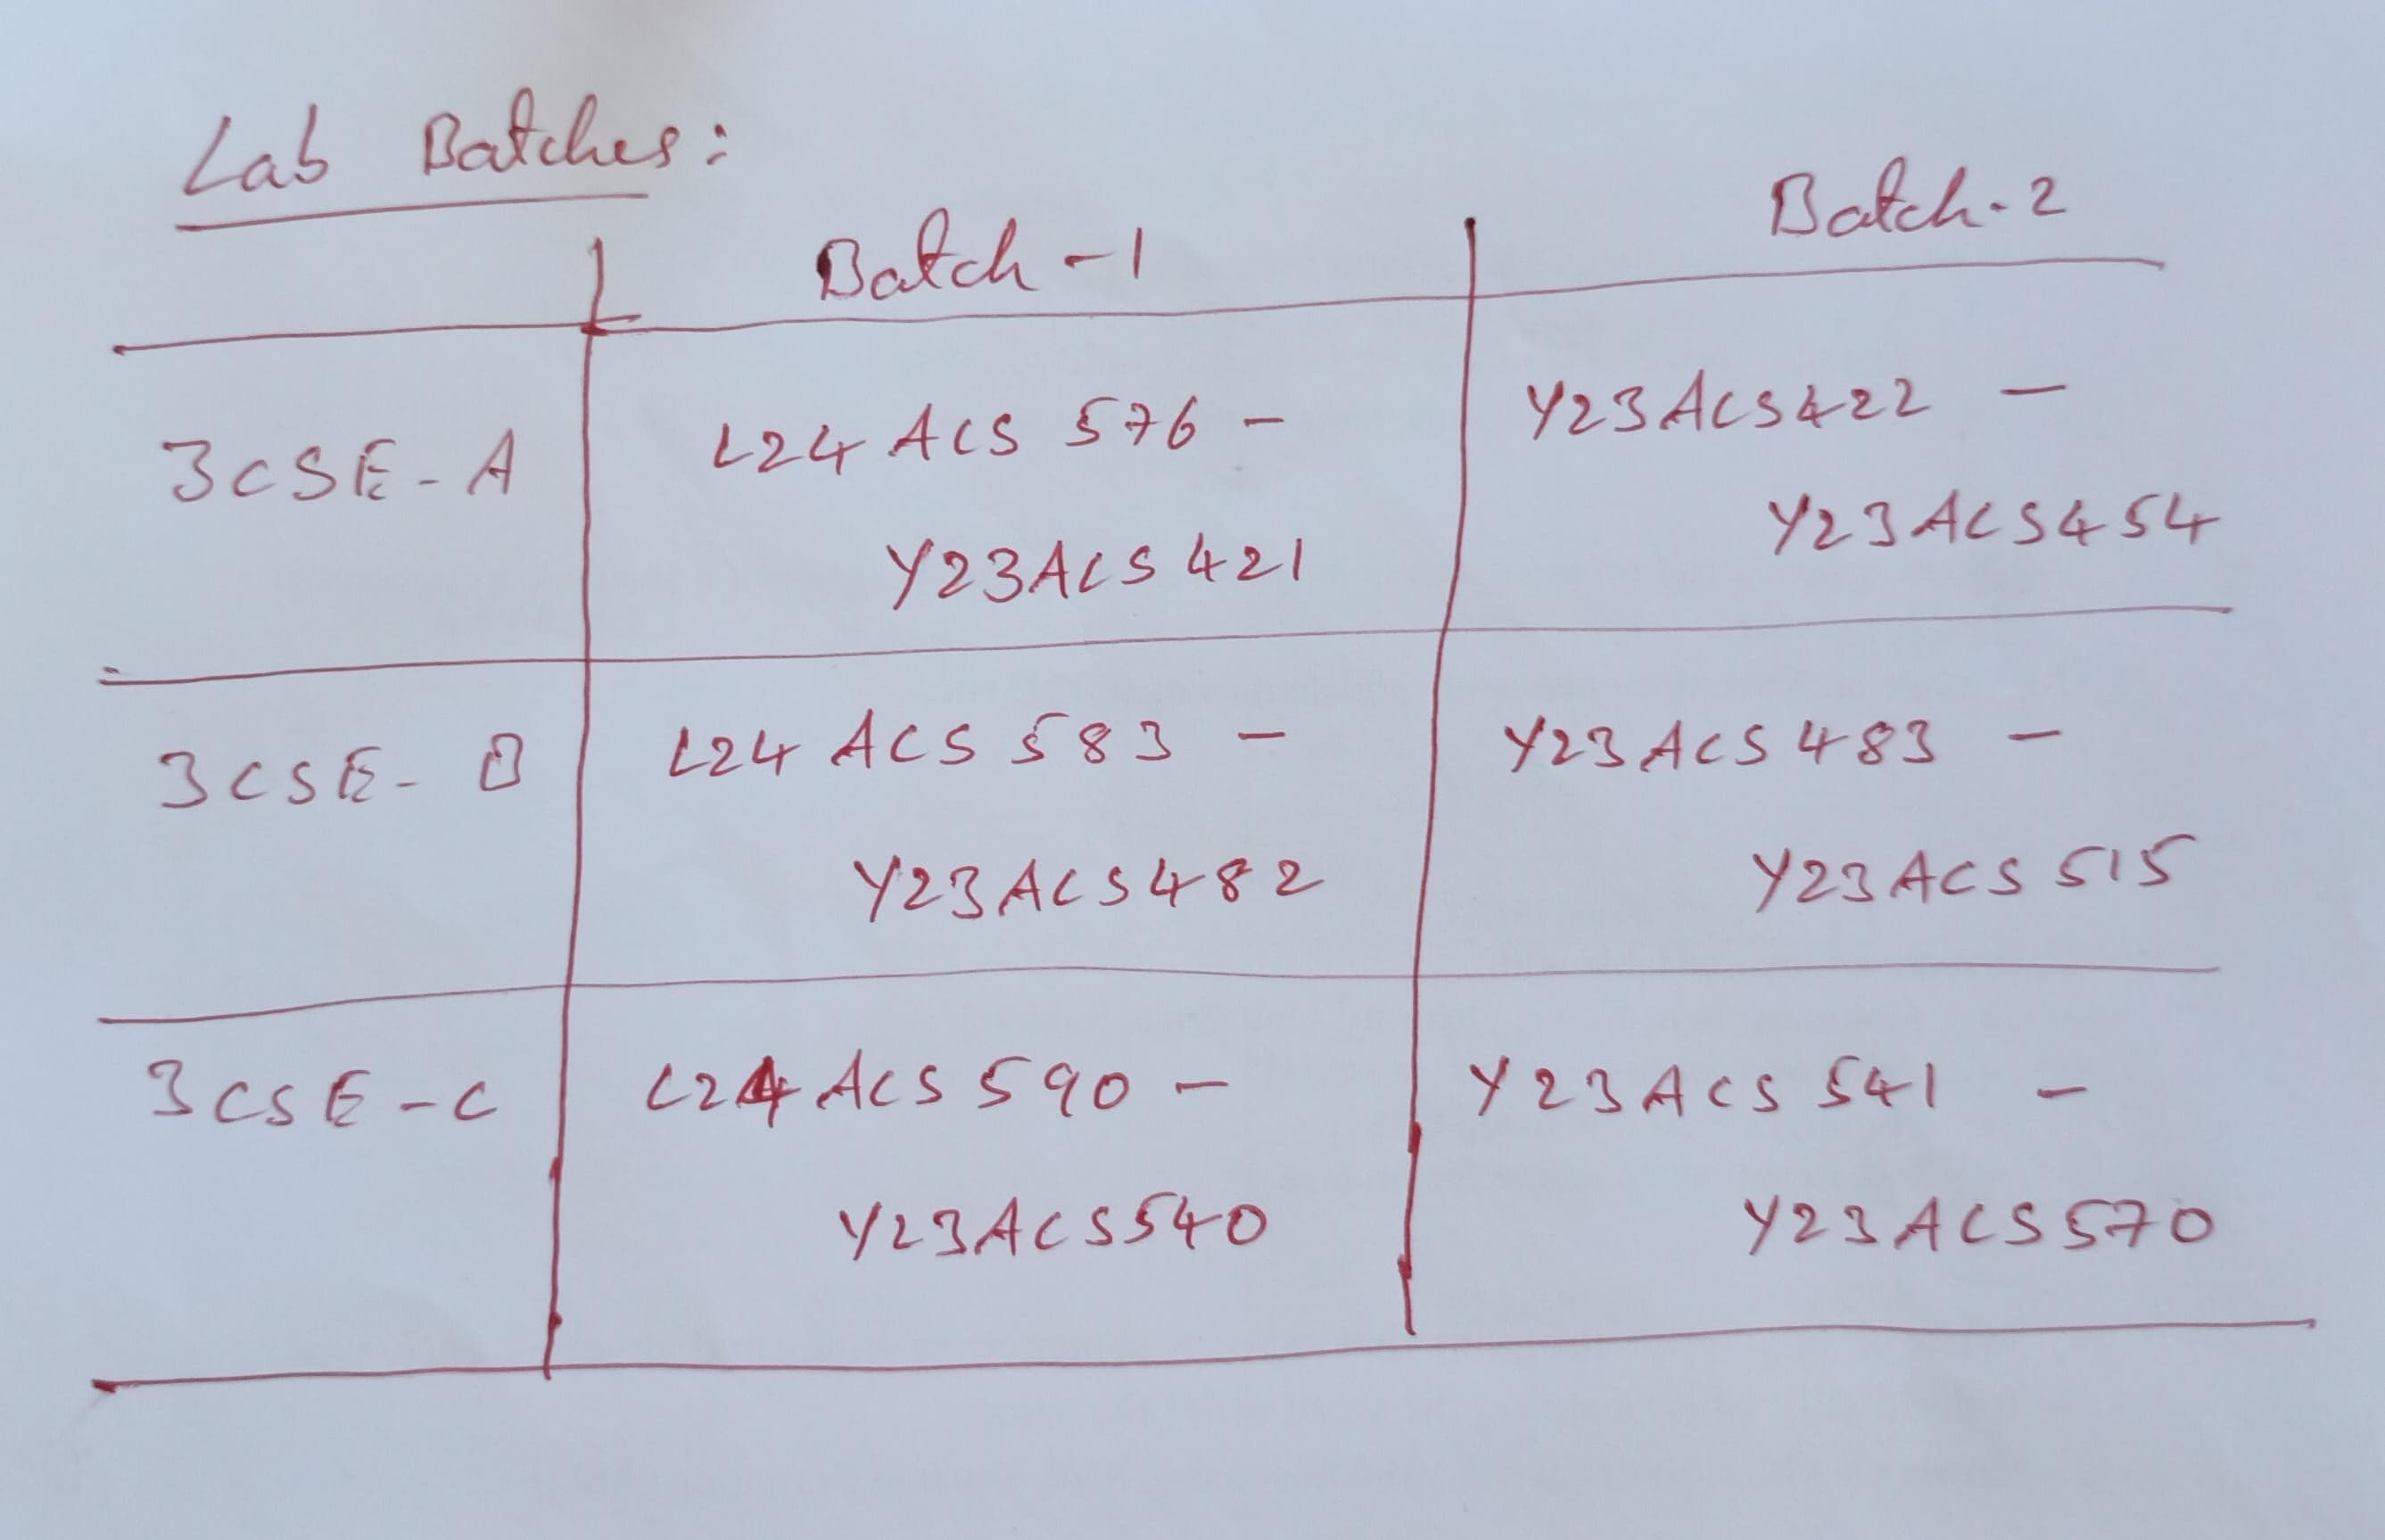 Lab Batches:
Batch-1 Batch-2
3CSE-A L24ACS576 - Y23ACS422 -
Y23ACS421 Y23ACS454
3CSE-B L24ACS583 - Y23ACS483 -
Y23ACS482 Y23ACS515
3CSE-C L24ACS590 - Y23ACS541 -
Y23ACS540 Y23ACS570